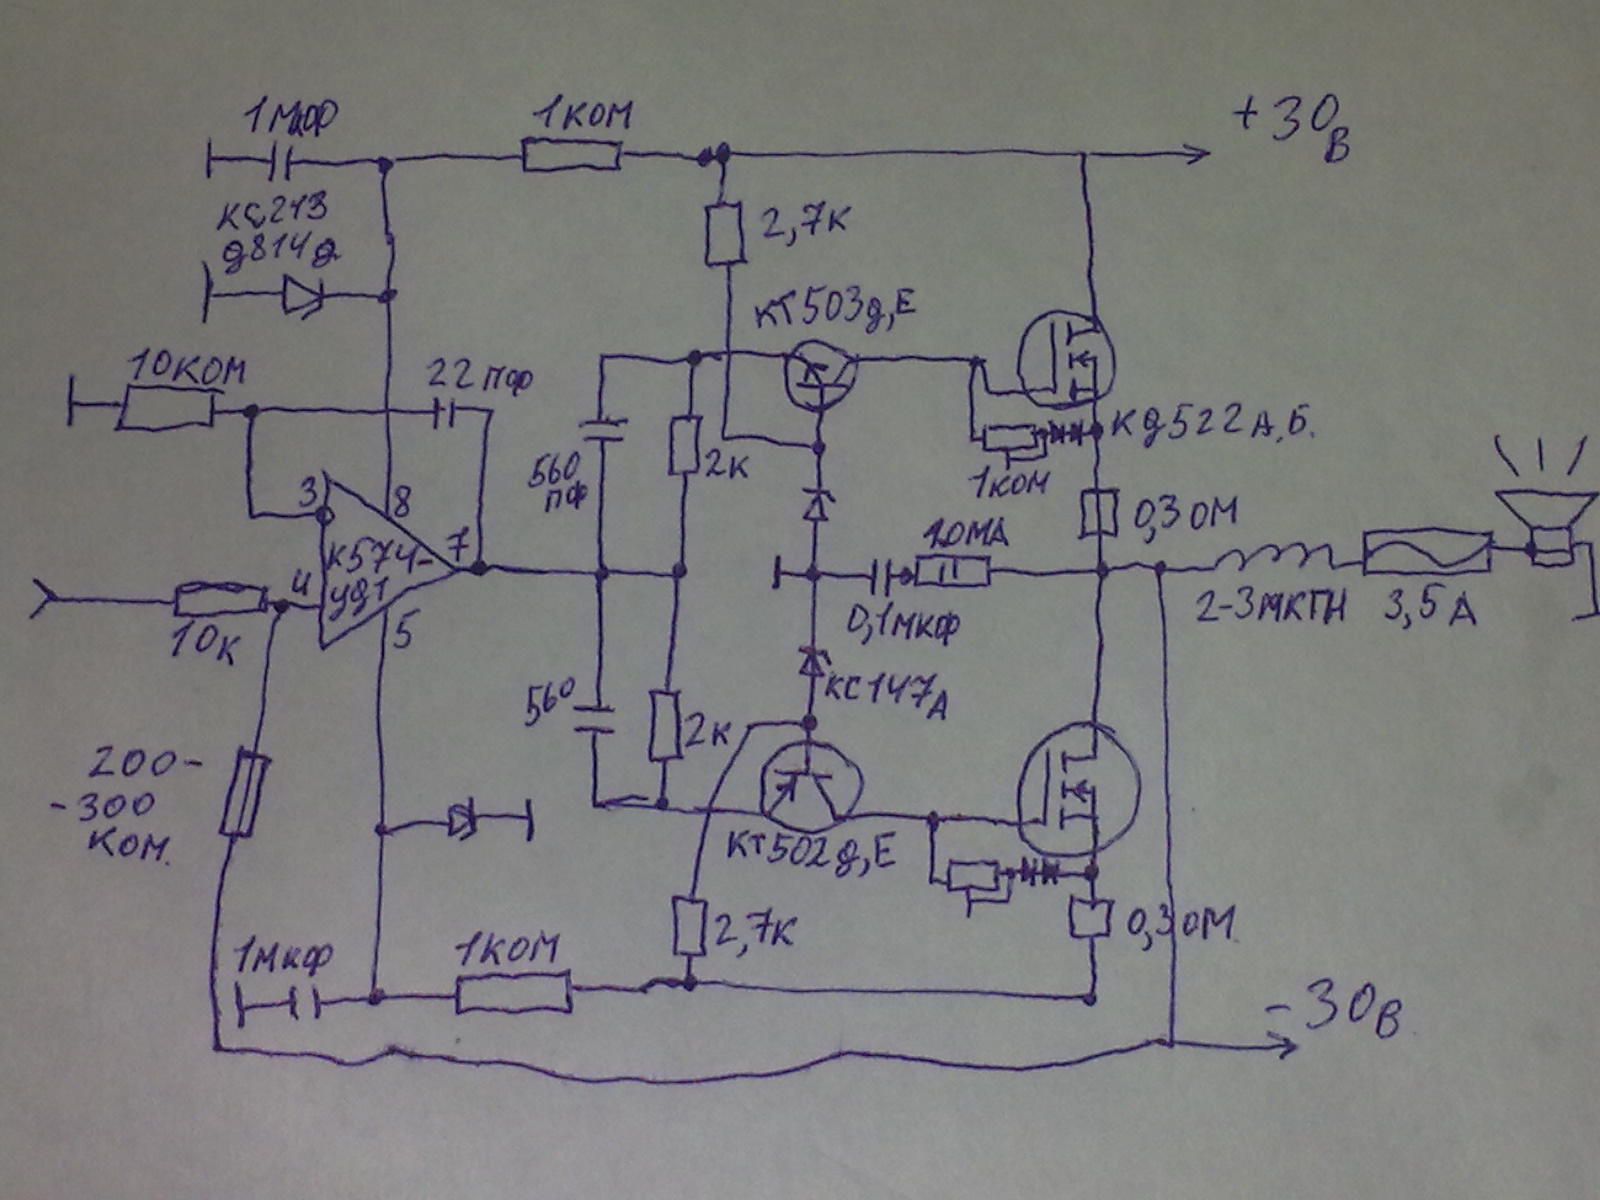 1мкФ
1КОМ
+30В
КС213
д814д
2,7К
КТ503д,Е
10КОМ
22ПФ
КД522А,Б.
560
ПФ
2К
1КОМ
3
8
0,3ОМ
К574-
УД1
7
10МА
4
10К
5
0,1мкФ
2-3МКГН
3,5А
560
2К
КС147А
200-
-300
КОМ.
КТ502д,Е
2,7К
0,3ОМ.
1мкФ
1КОМ
-30В